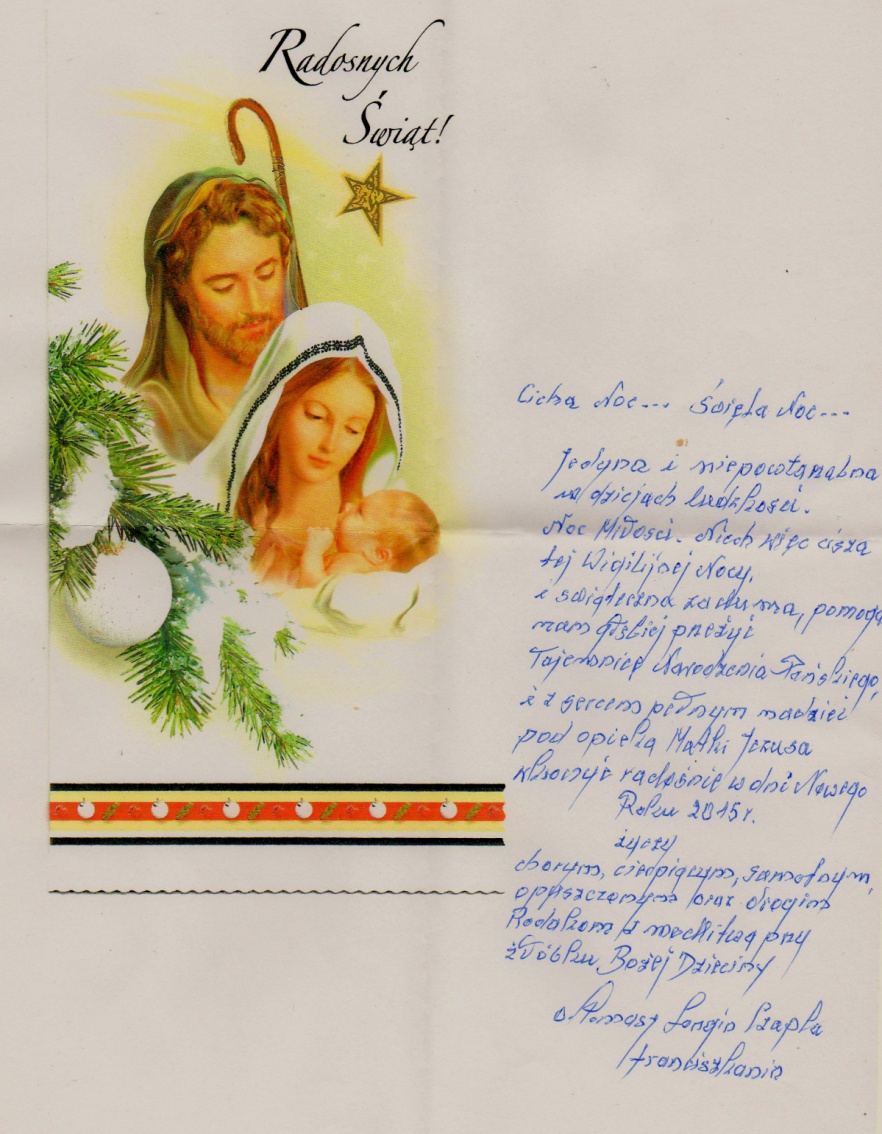 Radosnych
Świąt!
Cicha Noc... Święta Noc...
Jedyna i niepowtarzalna
w dziejach ludzkości.
Noc Miłości. Niech więc cisza
tej Wigilijnej Nocy,
i świąteczna zaduma, pomogą
nam głębiej przeżyć
Tajemnicę Narodzenia Pańskiego,
i z sercem pełnym nadziei
pod opieką Matki Jezusa
wkroczyć radośnie w dni Nowego
Roku 2015r.
życzy
chorym, cierpiącym, samotnym,
opuszczonym oraz drogim
Rodakom z modlitwą przy
żłóbku Bożej Dzieciny
o Tomasz Longin Czapla
franciszkanin